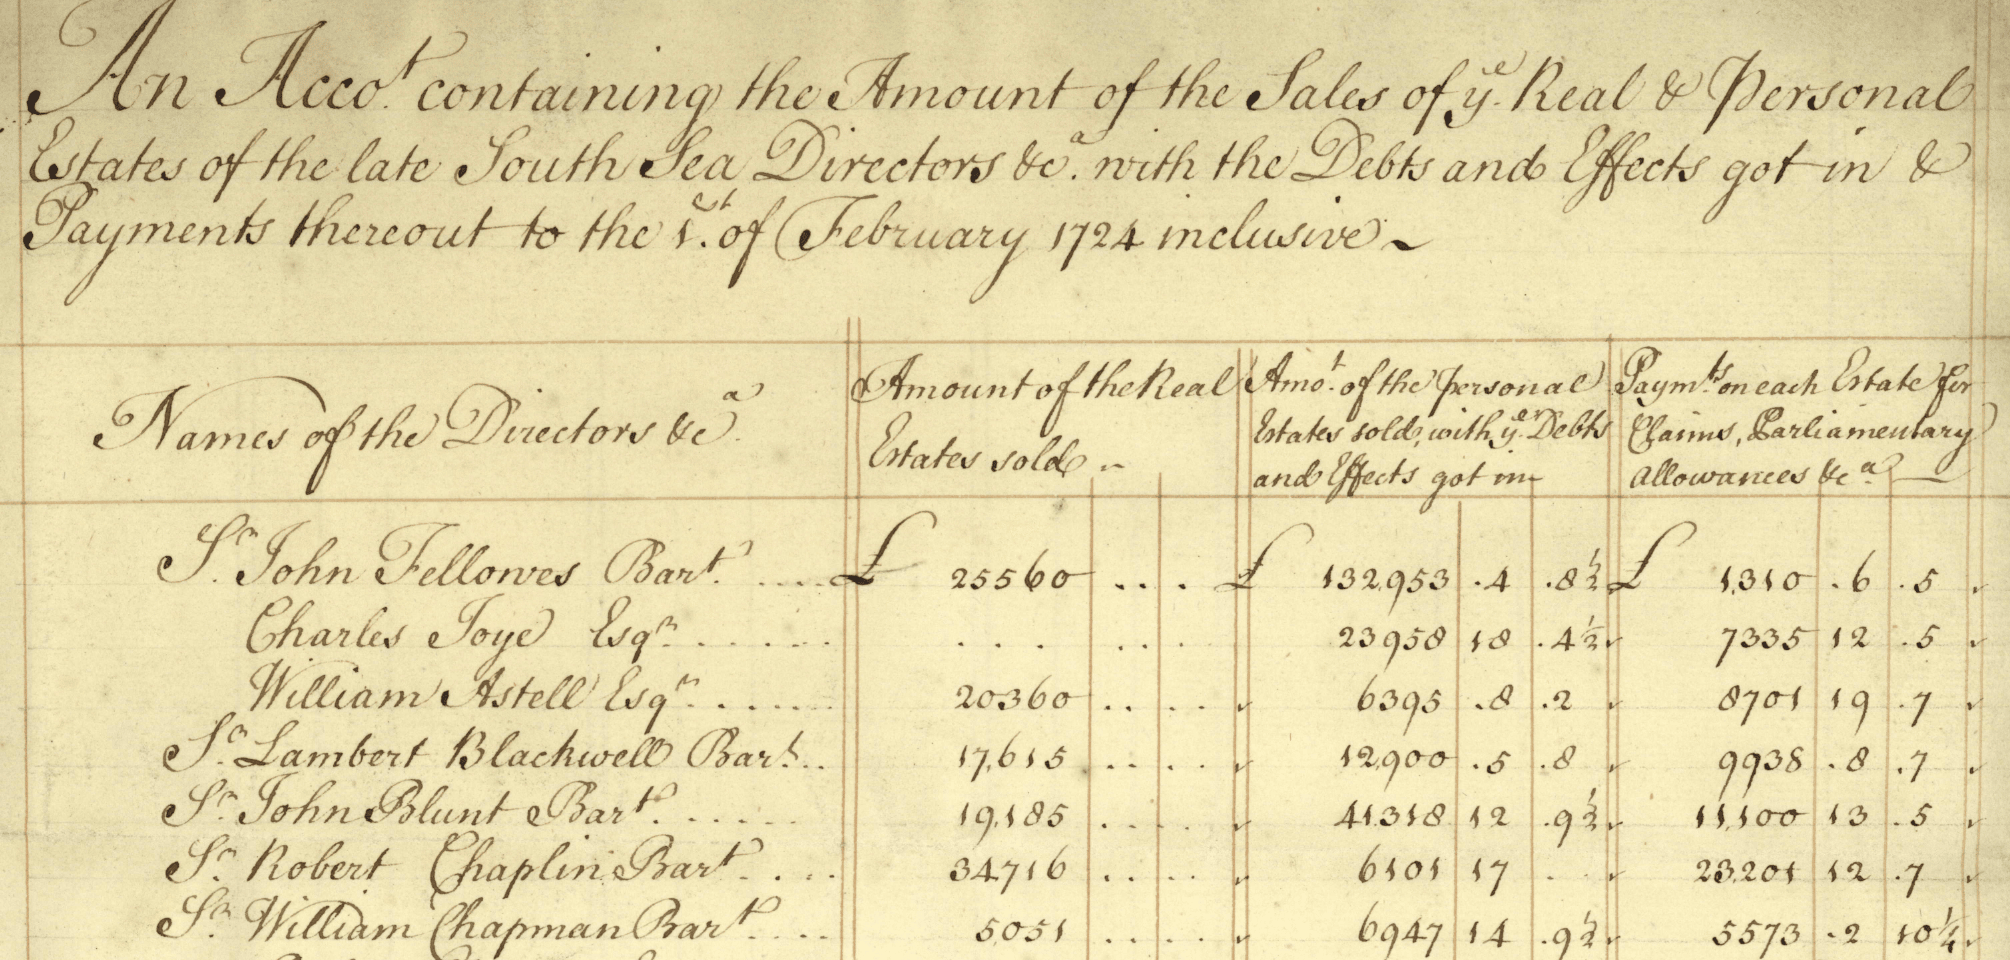 An Acco.t containing the Amount of the Sales of ye. Real & Personal
Estates of the late South Sea Directors &c.a with the Debts and Effects got in &
Payments thereout to the 1.st of February 1724 inclusive
Names of the Directors &c.a
Amount of the Real
Estates sold
Amo.t of the personal
Estates sold, with ye.er Debts
and Effects got in
Paym.ts on each Estate for
Claims, Parliamentary
allowances &c.a
S.r John Fellowes Bar.t .... £ 25560 .. . £ 132,953 .4 .8½ £ 1,310 .6 .5
Charles Joye Esq.r ..... . . . .. . 23,958 18 .4½ 7335 12 .5
William Astell Esq.r ..... 20360 .. .. 6395 .8 .2 8701 19 .7
S.r Lambert Blackwell Bar.t .. 17,615 .. .. 12,900 .5 .8 9938 .8 .7
S.r John Blunt Bar.t ..... 19,185 .. .. 41,318 12 .9½ 11,100 13 .5
S.r Robert Chaplin Bar.t .... 34,716 .. .. 6101 17 . . 23,201 12 .7
S.r William Chapman Bar.t .... 5,051 .. .. 6947 14 .9½ 5573 .2 10¼